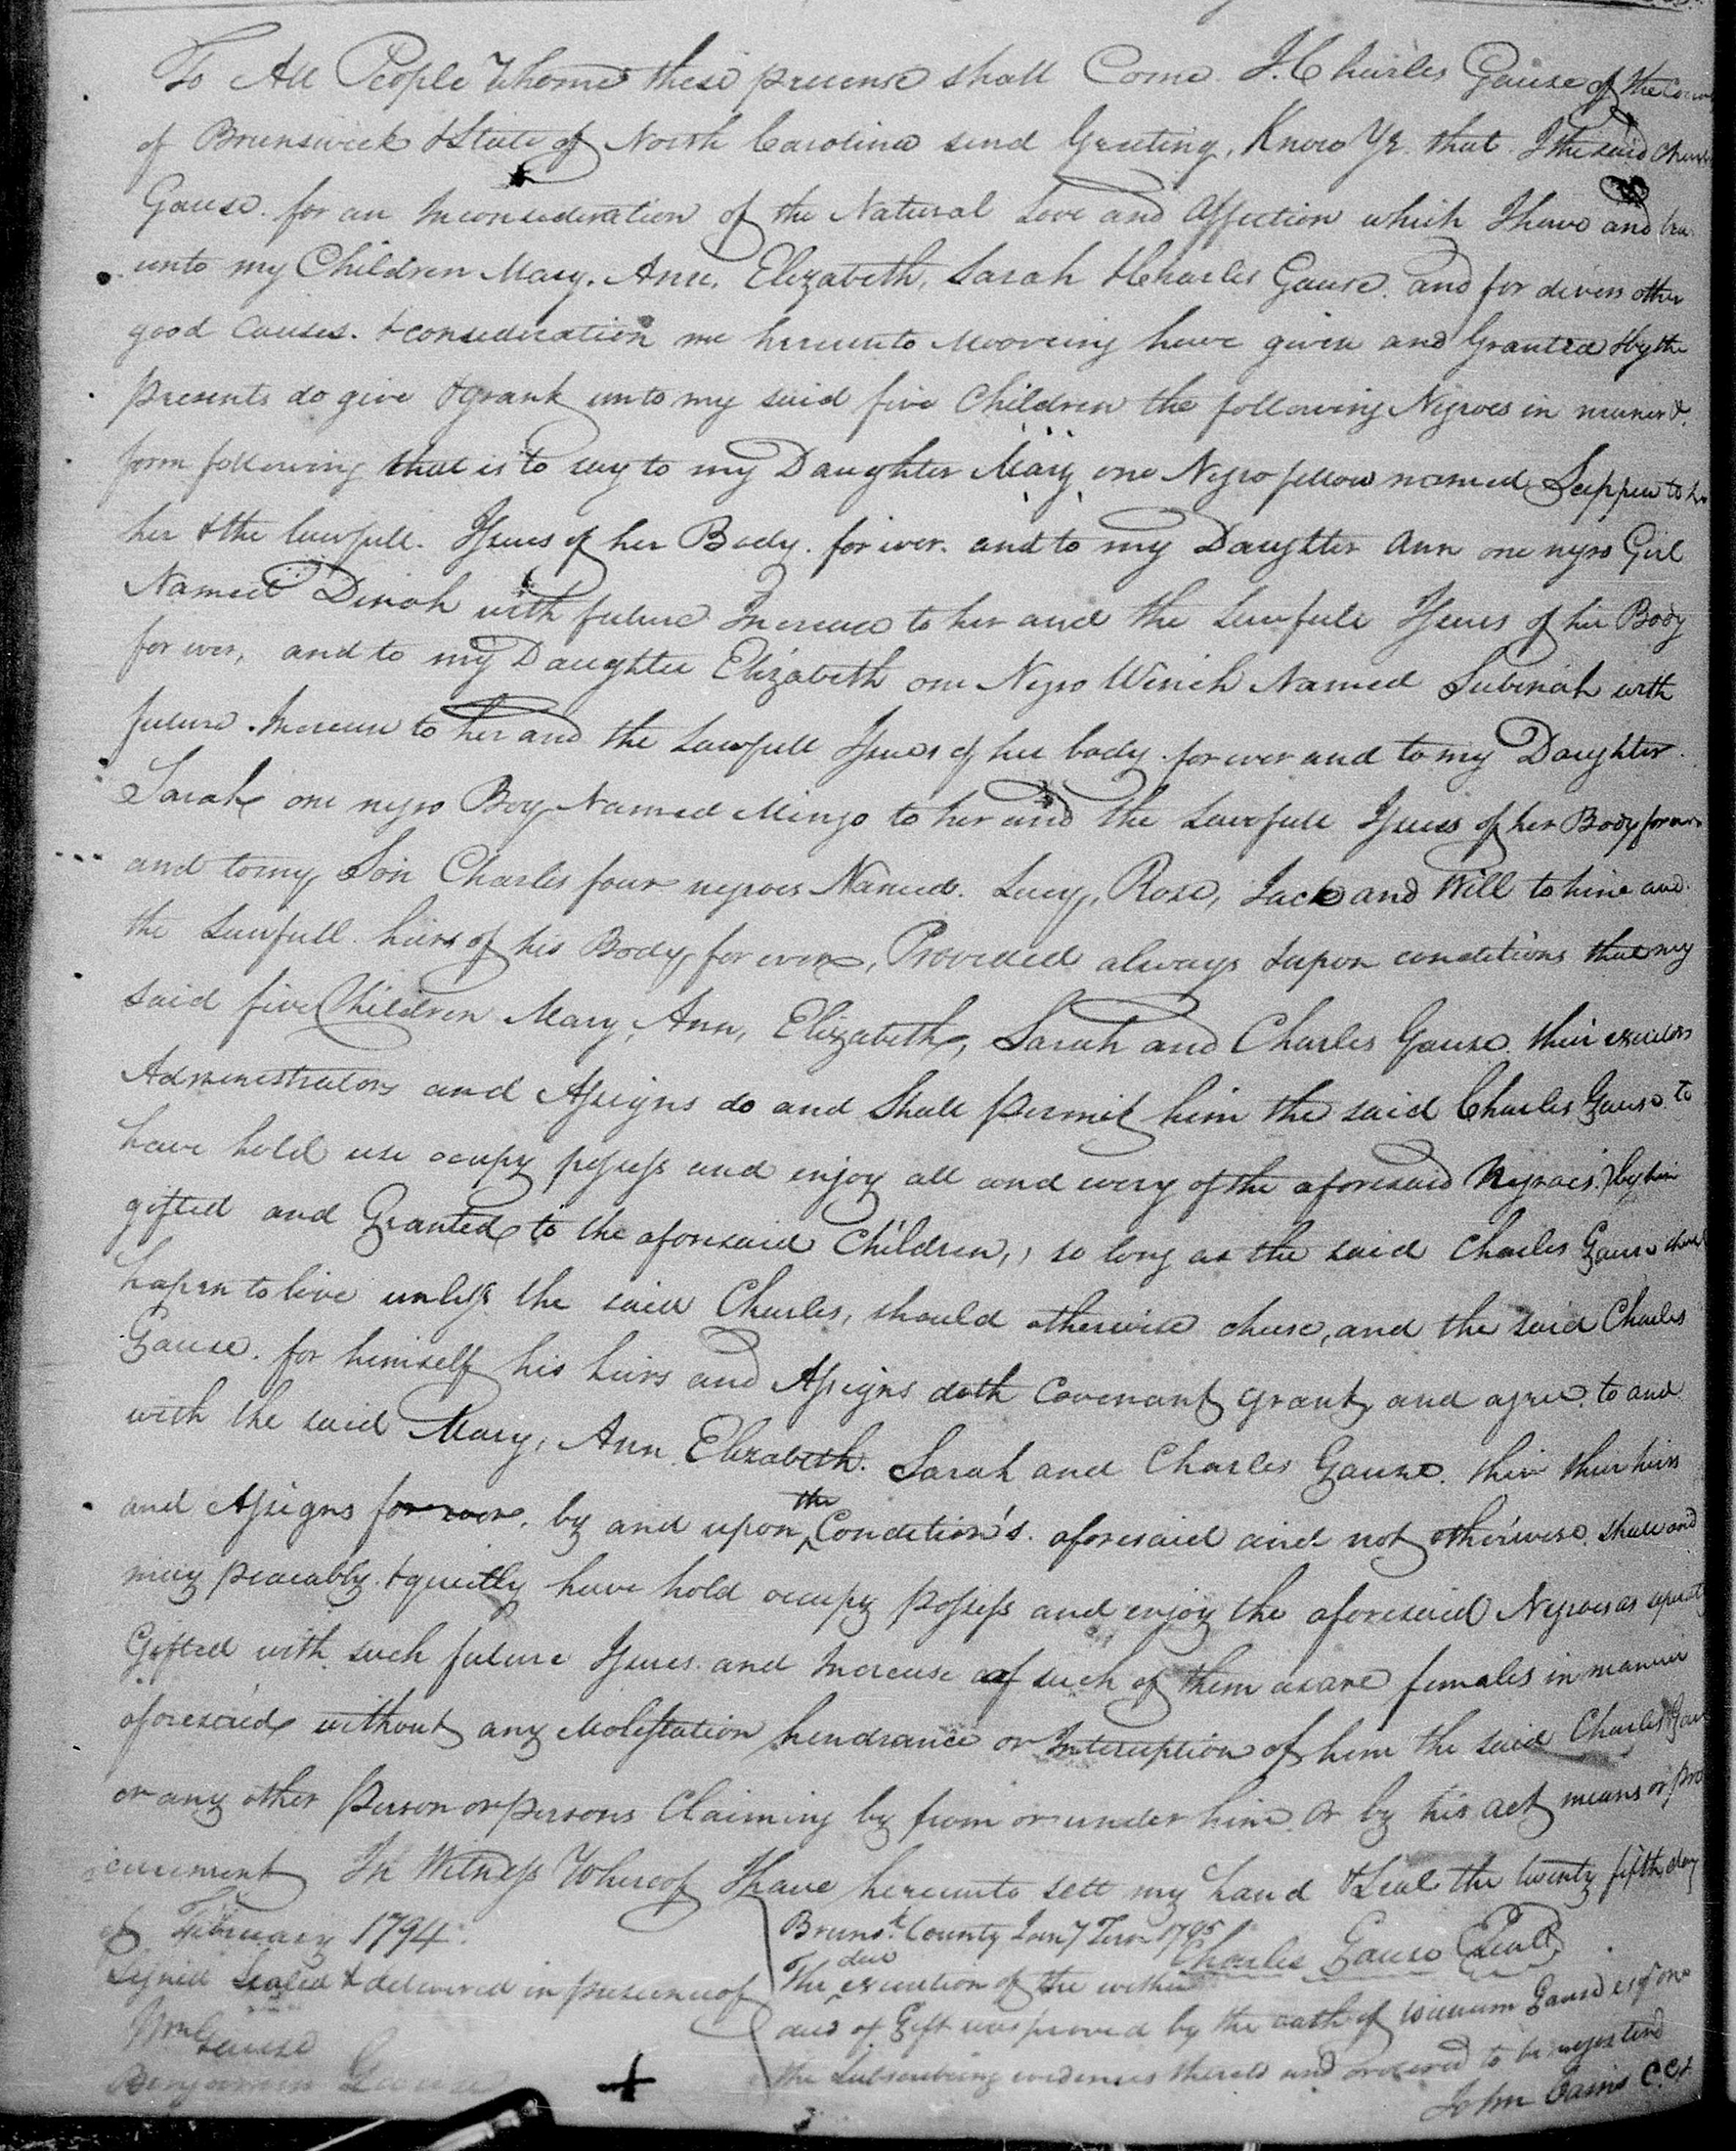 To All People Whome these presense shall Come. I. Charles Gause of the
of Brunswick & State of North Carolina send Greeting, Know Ye. that I the said
Gause. for an Inconsideration of the Natural Love and Affection which I have and
unto my Children Mary. Ann. Elizabeth, Sarah & Charles Gause. and for divers other
good Causes. & consideration me hereunto Mooveing have given and Granted & by the
presents do give & grant unto my said five Children the following Negroes in maner &
form following that is to say to my Daughter Mary one Negro fellow named to
her & the lawfull. Issues of her Body. for iver. and to my Daughter Ann one negro Girl
Named Dinah with future Increace to her and the Lawfull Issues of her Body
for iver, and to my Daughter Elizabeth one Negro Winch Named Subinah with
future Increase to her and the Lawfull Issues of her body. for ever and to my Daughter
Sarah one negro Boy Named Mingo to her and the Lawfull Issues of her Body for ever
and to my Son Charles four negroes Named. Lucy, Rose, Jack and Will to hime and
the Lawfull heirs of his Body for ever, Provided always & upon conditions that my
said five Children Mary, Ann, Elizabeth, Sarah and Charles Gause. their executors
Administrators and Assigns do and Shall permit him the said Charles Gause to
have hold use ocupy posess and enjoy all and every of the aforesaid Negroes. by him
gifted and Granted to the aforesaid Children, so long as the said Charles Gause shall
hapen to live unless the said Charles, should otherwise chuse, and the said Charles
Gause. for himself his heirs and Assigns doth Covenant grant and agree. to and
with the said Mary, Ann Elizabeth. Sarah and Charles Gause. their their heirs
and Assigns for ever. by and upon the Condition's. aforesaid and not otherwise. shall and
may peacably. & quietly have hold occupy Possess and enjoy the aforesaid Negroes as
Gifted with such future Issues. and Increase of such of them as are females in manner
aforesaid without any Molestation hendrance or Interuption of him the said Charles
or any other Person or persons Claiming by from or under him. or by his act means or pro
curement In Witness Whereof I have hereunto sett my hand & Seal the twenty fifth day
of February 1794.
Signed Sealed & delivered in presence of
Wm Gause
Benjamin Gause
Charles Gause (Seal)
Brunsk. County Jany Term 1795
The due execution of the within
deed of Gift was proved by the oath of William Gause esqr one
the Subscribing evidences thereto and ordered to be registerd
John Cains C.Ct